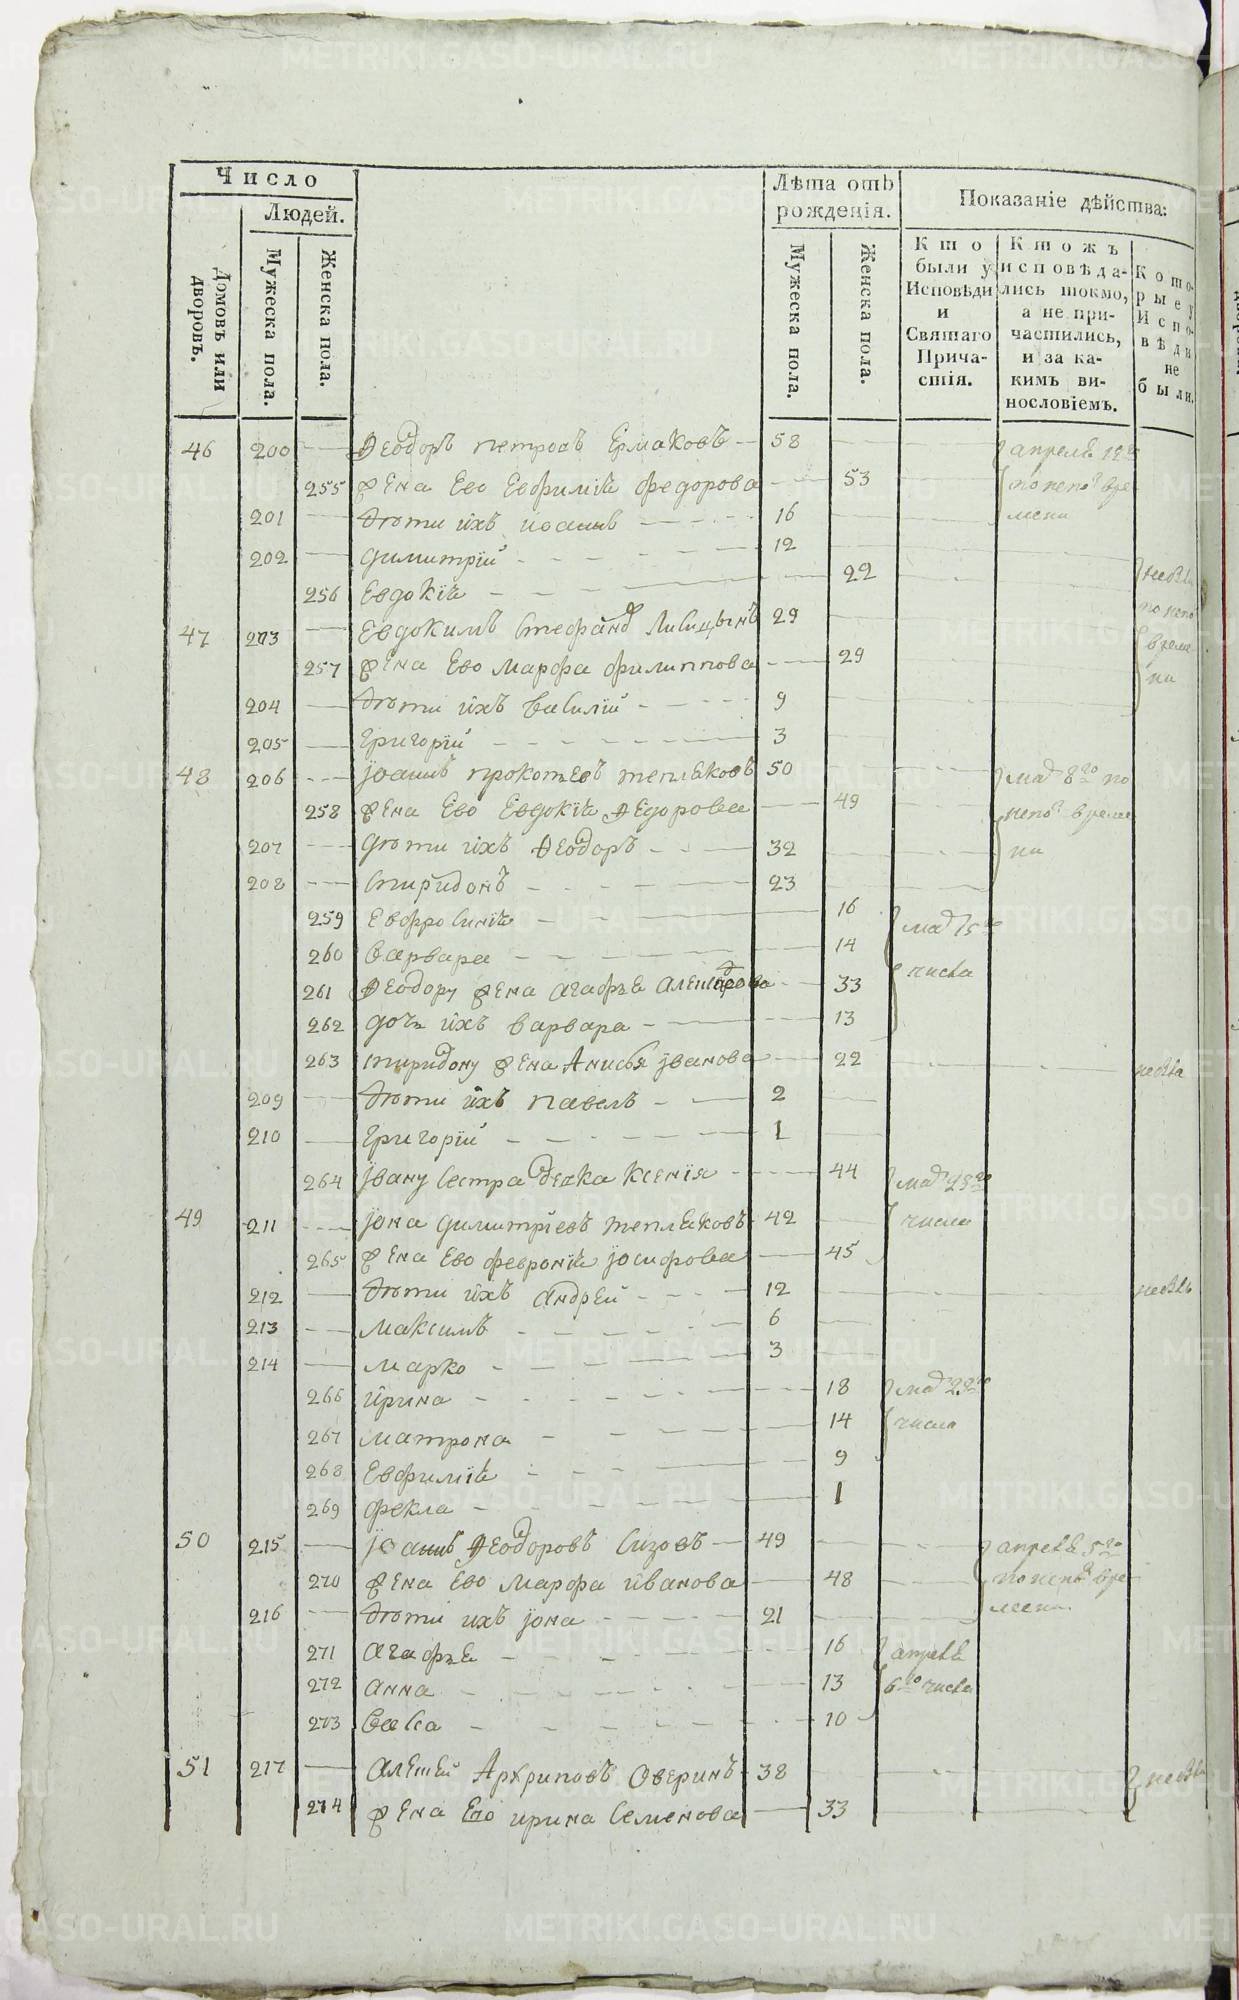 Число
Людей.
Домовъ или дворовъ.
Мужеска пола.
Женска пола.
Лѣта отъ рожденія.
Мужеска пола.
Женска пола.
Показаніе дѣйства:
Кто были у Исповѣди и Святаго Причастія.
Ктожъ исповѣдались токмо, а не причастились, и за какимъ винословіемъ.
Которые у Исповѣди не были.
46 200 — Ѳеодоръ петровъ Ермаковъ — 58 апреля 12го
255 жена Ево Евфимія федорова 53 по непо вре
201 — дѣти ихъ иоаннъ 16 мени
202 — димитрій 12
256 Евдокія 22 небыв
47 203 — Евдокимъ Стефановъ Лисицынъ 29 по непо
257 жена Ево Марфа филиппова 29 време
204 — дѣти ихъ василій 9 ни
205 — григорій 3
48 206 — Іоаннъ прокопьевъ теплѧковъ 50 маѧ 8го по
258 жена Ево Евдокія Ѳедорова 49 непо време
207 — дѣти ихъ Ѳеодоръ 32 ни
208 — спиридонъ 23
259 Евфросинія 16 маѧ 15го
260 варвара 14 числа
261 Ѳеодору жена агафьѧ александрова 33
262 дочь ихъ варвара 13
263 спиридону жена Анисья Іванова 22
209 — дѣти ихъ павелъ 2
210 — григорій 1
264 Івану сестра девка Ксенія 44 маѧ 23го
49 211 — Іона димитріевъ теплѧковъ 42 числа
265 жена Ево февронія Іосифова 45
212 — дѣти ихъ андрей 12
213 — максимъ 6
214 — марко 3
266 ирина 18 маѧ 23го
267 матрона 14 числа
268 Евфимія 9
269 фекла 1
50 215 — Іоаннъ Ѳеодоровъ Сизовъ — 49 апрелѧ 5го
270 жена Ево марфа иванова 48 по непо вре
216 — дѣти ихъ Іона 21 мени
271 агафьѧ 16 апрелѧ
272 анна 13 6го числа
273 васса 10
51 217 — алексей Архиповъ Оверинъ 38
274 жена Ево ирина Семенова 33
METRIKI.GASO-URAL.RU